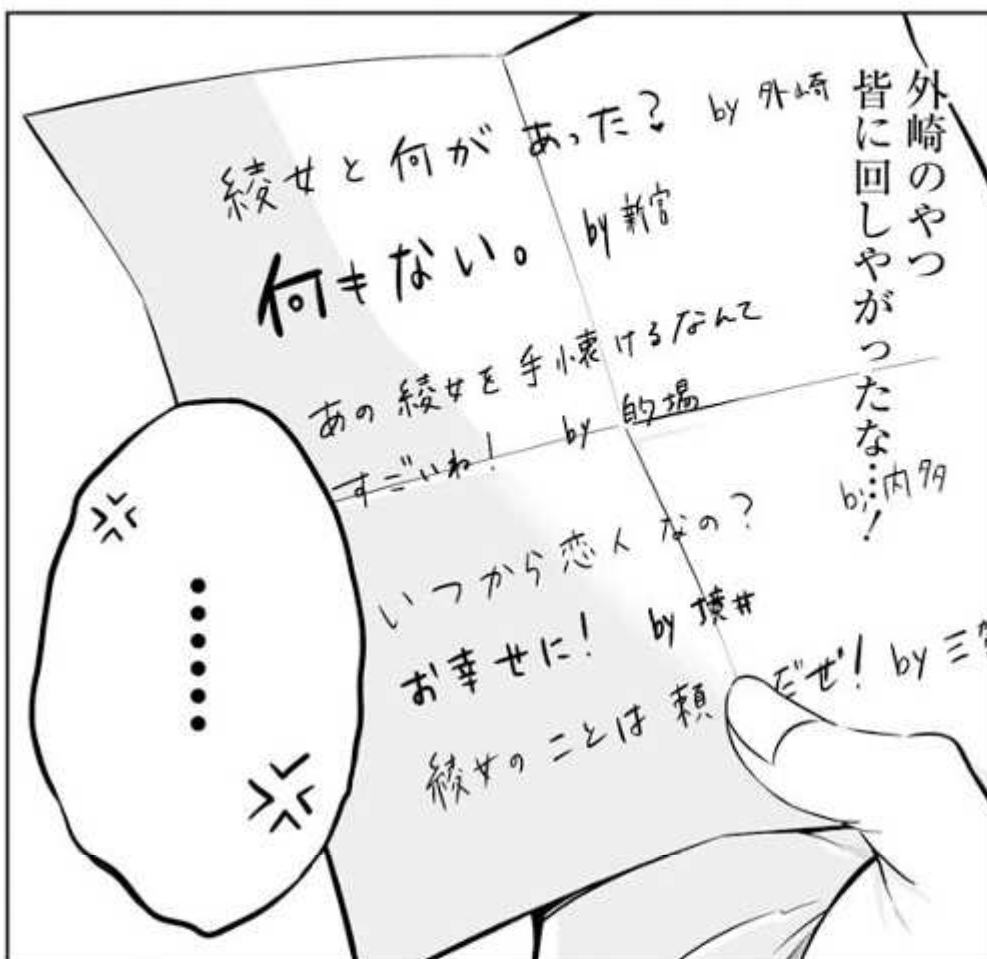 外崎のやつ
皆に回しやがったな……！
綾女と何があった？ by 外崎
何もない。 by 新宮
あの綾女を手懐けるなんて
すごいわ！ by 的場
いつから恋人なの？ by 内多
お幸せに！ by 境井
綾女のことは頼 だぜ！ by 三
……